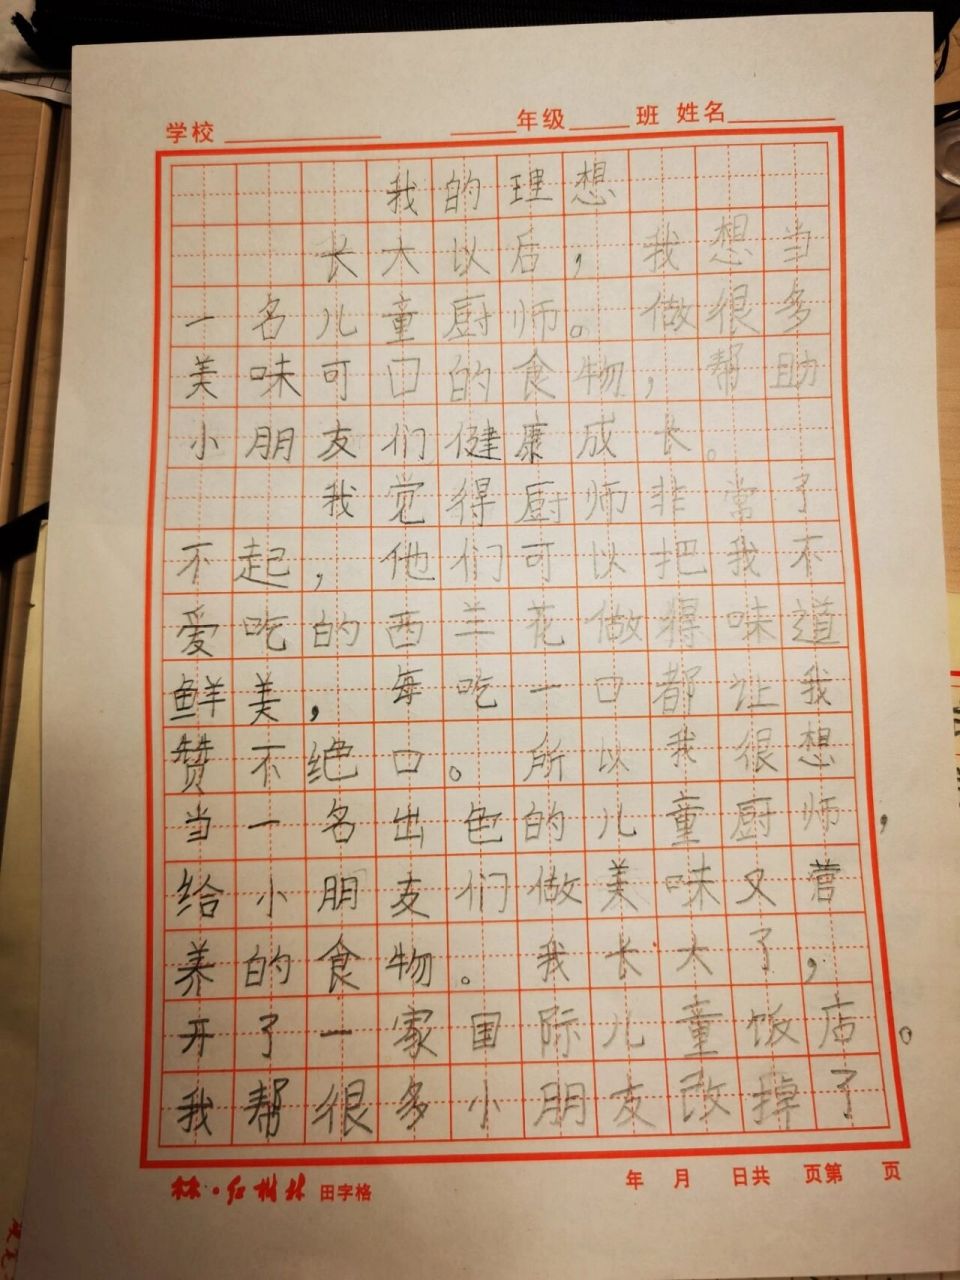 学校 年级 班 姓名
我的理想
长大以后，我想当
一名儿童厨师。做很多
美味可口的食物，帮助
小朋友们健康成长。
我觉得厨师非常了
不起，他们可以把我不
爱吃的西兰花做得味道
鲜美，每吃一口都让我
赞不绝口。所以我很想
当一名出色的儿童厨师，
给小朋友们做美味又营
养的食物。我长大了，
开了一家国际儿童饭店。
我帮很多小朋友改掉了
红树林 田字格 年 月 日共 页第 页